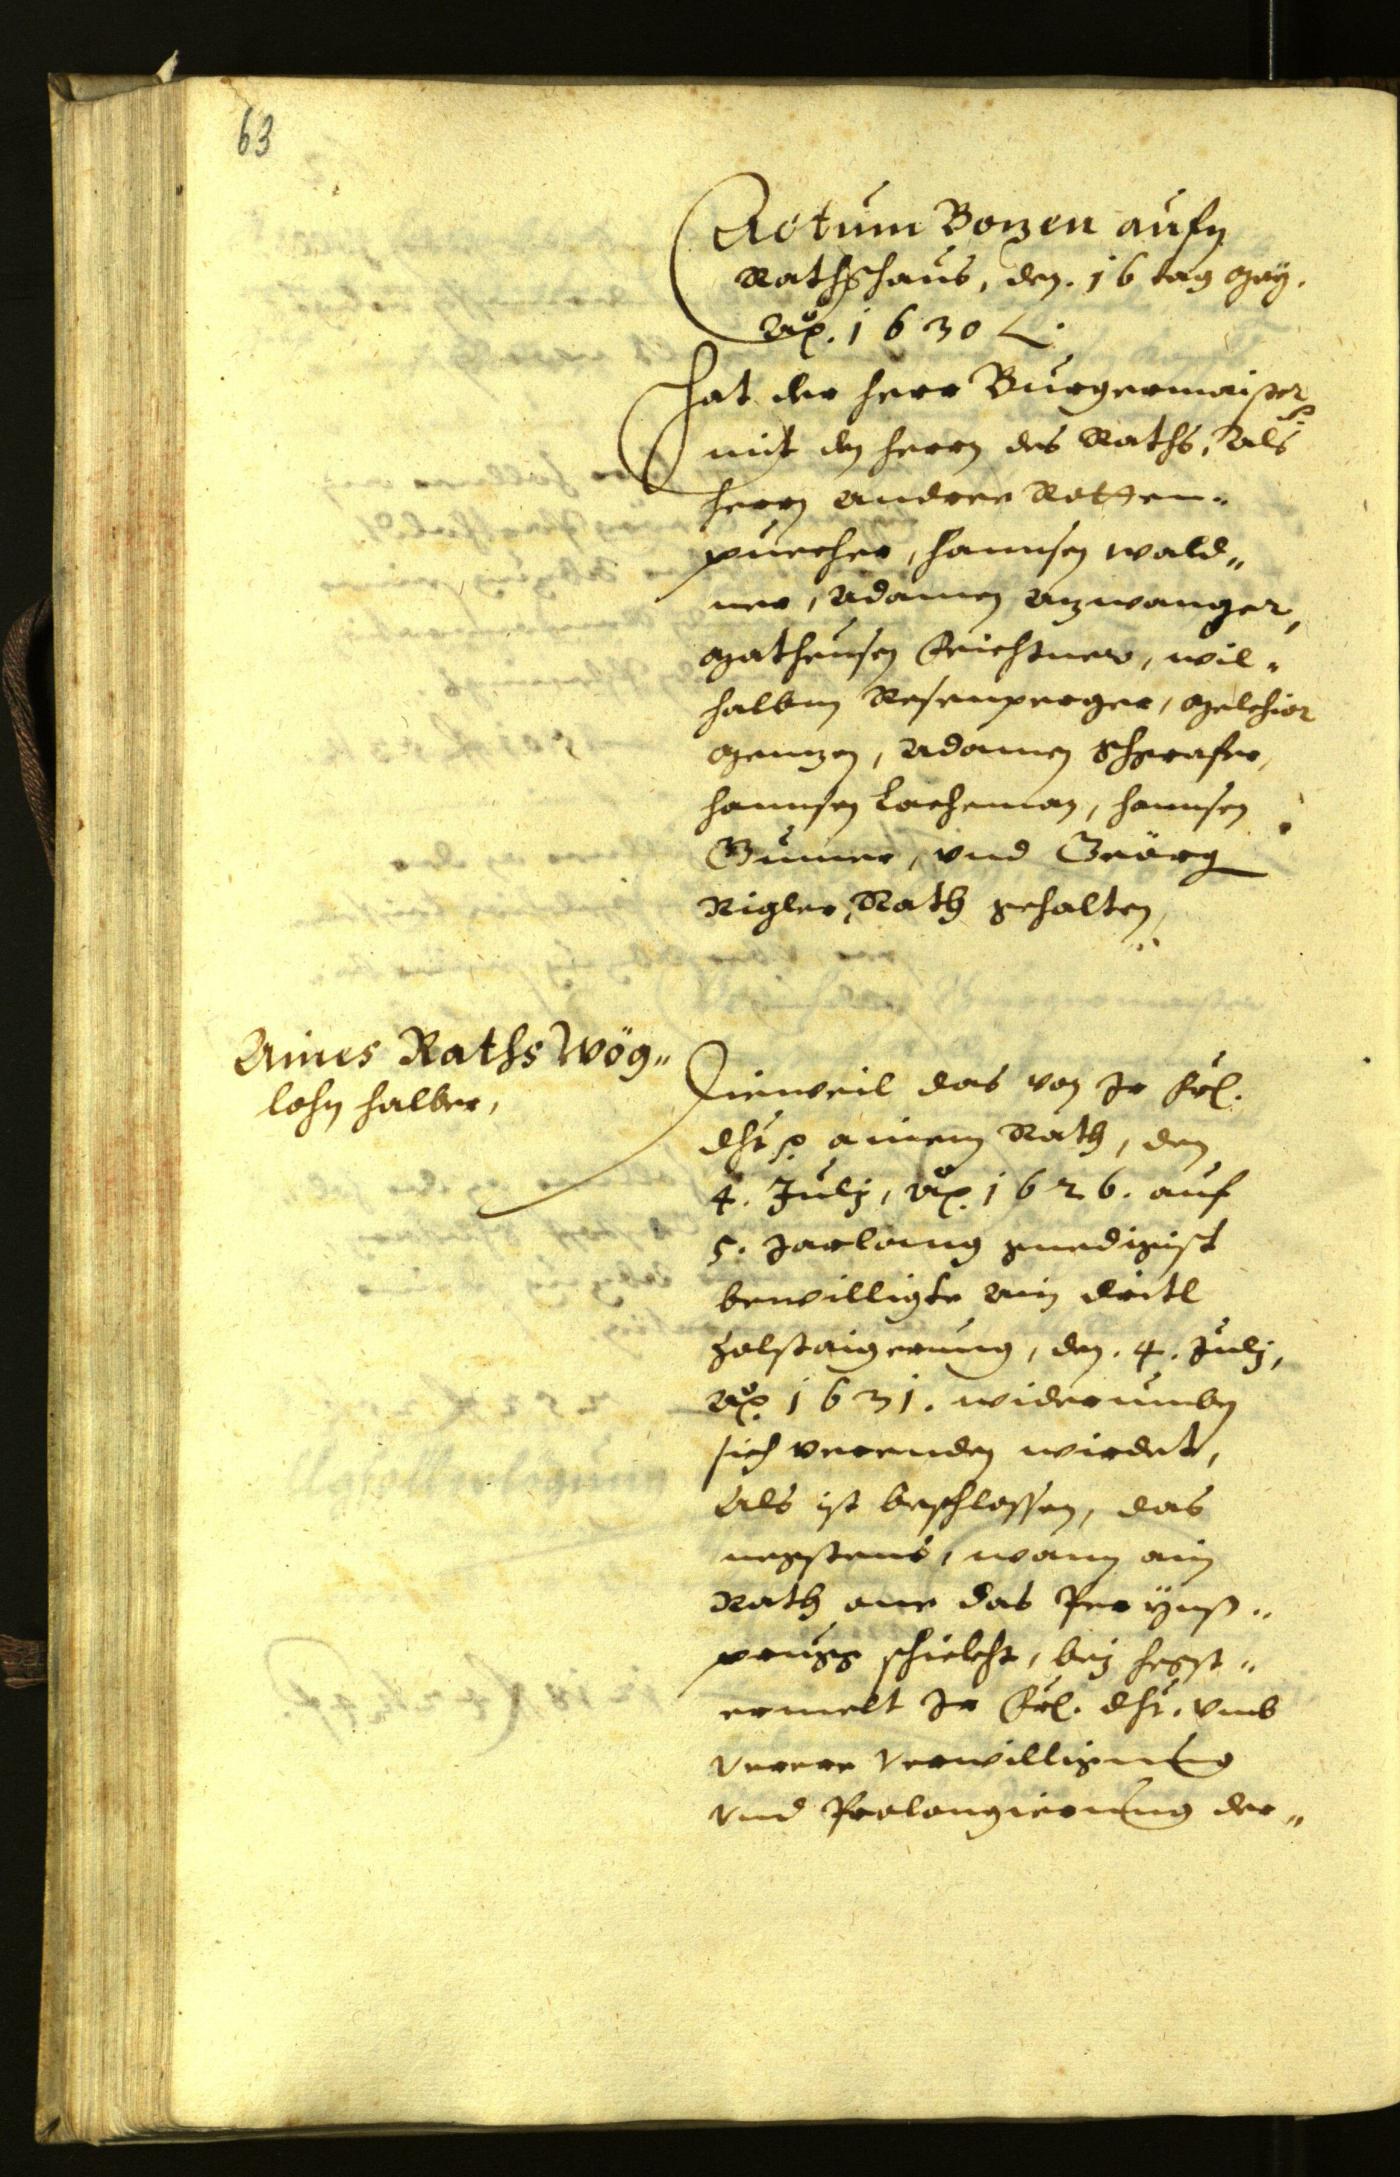 63
Actum Bozen aufm
Rathshaus, den. 16 tag May.
Ao. 1630
Hat der herr Burgermaister
mit den herrn des Raths, Als
herrn Andree Rotten-
puecher, Hannsen Wald„
ner, Adamen Azwanger,
Matheusen Feichtner, Wil-
halbm Rosenperger, Melchior
Menzen, Adamen Schgrafer,
Hannsen Lacheman, Hannsen
Gumer, vnd Geörg
Rigler, Rath gehalten,
Aines Raths Wög„
lohn halber,
Dieweil das von Ir Frl.
Dht. ainem Rath, den
4. Julij, Ao. 1626. auf
5. Jarlanng gnedigist
bewilligte ain dritl
Zolstaigerung, den. 4. Julij,
Ao. 1631. widerumben
sich verenden wirdet,
Als ist beschlossen, das
negstens, wann ain
Rath one das per Ynß„
prugg schickht, bey hegst„
ermelt Ir Frl. Dht. vmb
verere verwilligung
vnd Prolongierung der„